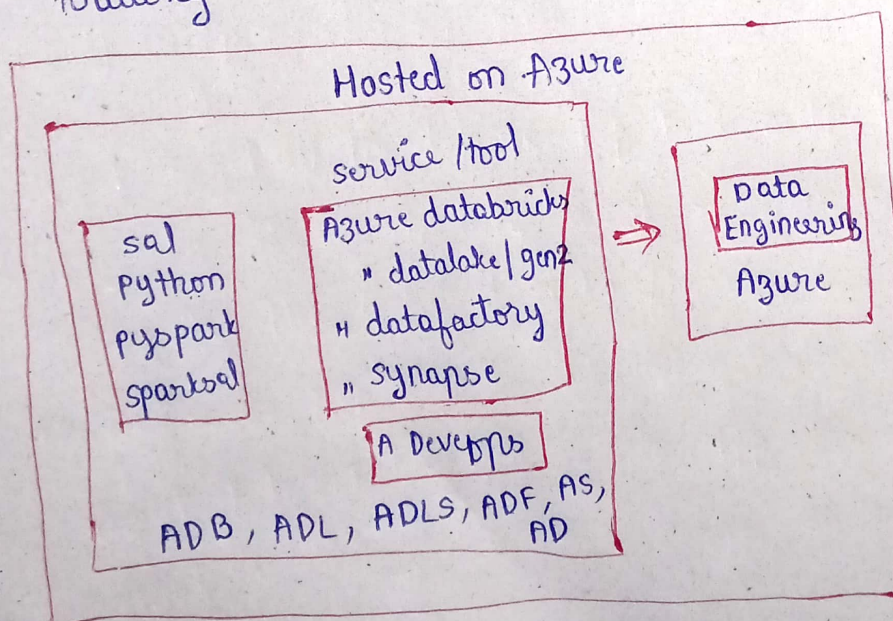 Hosted on Azure
service /tool
sql
python
pyspark
sparksql
Azure databricks
" datalake/gen2
" datafactory
" synapse
A Devepps
ADB, ADL, ADLS, ADF, AS,
AD
Data
Engineering
Azure